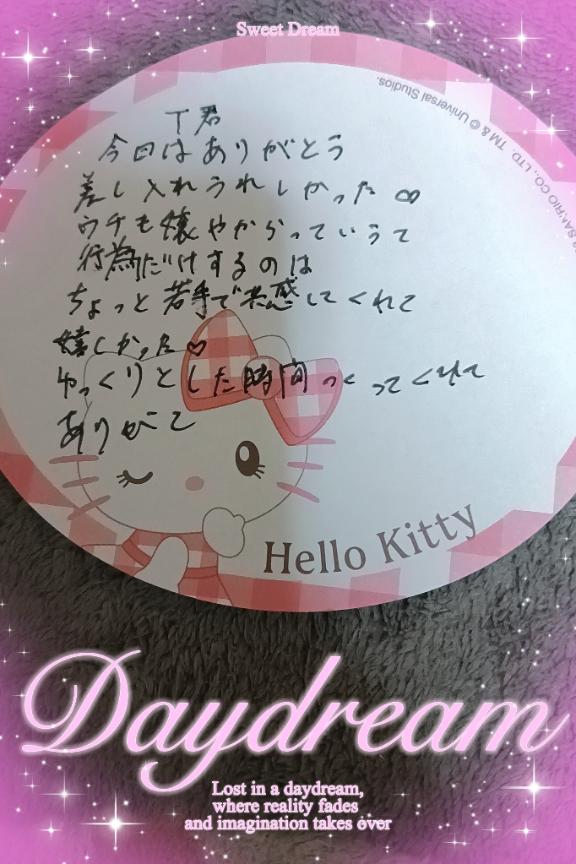 Sweet Dream
TM & © Universal Studios.
SANRIO CO., LTD.
T君
今回はありがとう
差し入れうれしかった♡
ウチも嬢やからっていうて
行為だけするのは
ちょっと苦手で共感してくれて
嬉しかった♡
ゆっくりとした時間つくってくれて
ありがとう
Hello Kitty
Daydream
Lost in a daydream,
where reality fades
and imagination takes over